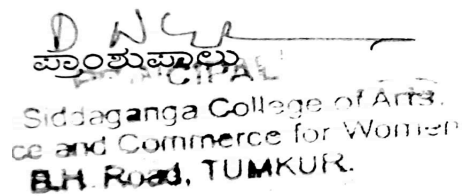 ಪ್ರಾಂಶುಪಾಲರು
PRINCIPAL
Siddaganga College of Arts.
ce and Commerce for Women
B.H. Road, TUMKUR.